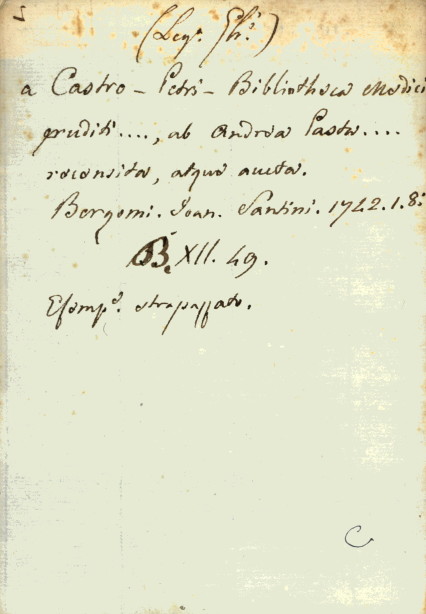 (Leg. Gh.)
a Castro - Petri - Bibliotheca Medici
eruditi...., ab Andrea Pasta....
recensita, atque aucta.
Bergomi. Joan. Santini. 1742. 1. 8:
B. XII. 49.
Esempe. strapazzato.
C